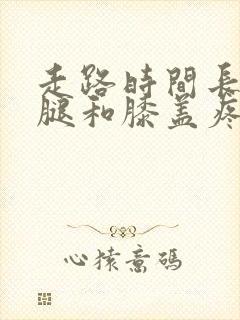 走路時間長
腿和膝盖疼
心猿意碼